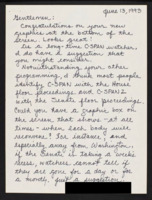 June 13, 1993
Gentlemen:
Congratulations on your new
graphics at the bottom of the
screen. Looks great.
As a long-time C-SPAN watcher,
I do have a suggestion that
you might consider.
Notwithstanding your other
programming, I think most people
identify C-SPAN with the House
floor proceedings and C-SPAN 2
with the Senate floor proceedings.
Could you have a graphic box on
the screen that shows - at all
times - when each body will
reconvene? For instance, and
especially away from Washington,
if the Senate is taking a weeks
recess, watchers cannot tell if
they are gone for a day or for
a month. Just a suggestion!